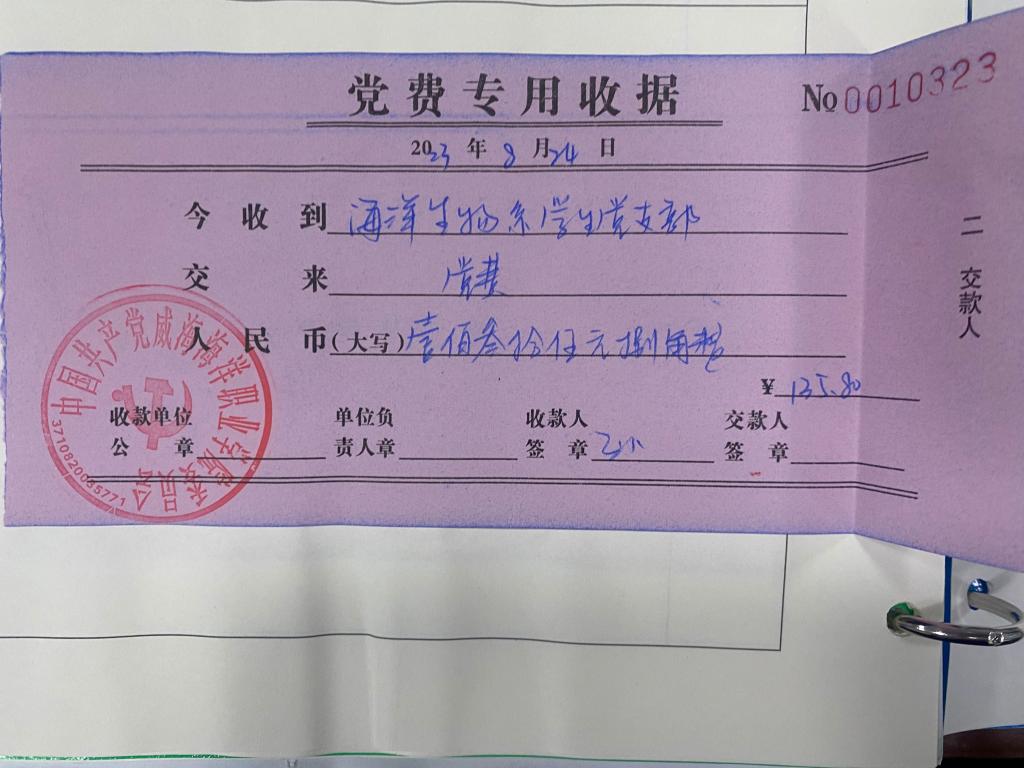 党费专用收据
No 0010323
2023 年 8 月 24 日
今收到 海洋生物系学生党支部
交来 党费
人民币(大写) 壹佰叁拾伍元捌角整
¥ 135.80
收款单位 公章
单位负责人章
收款人签章
交款人签章
二 交款人
中国共产党威海海洋职业学院委员会
3710820085771